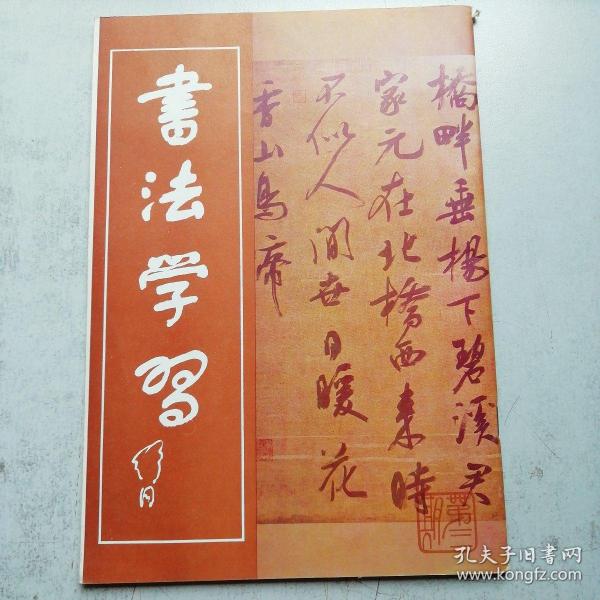 書法学習
橋畔垂楊下碧溪君
家元在北橋西来時
不似人間世日暖花
香山鳥啼
第二期
孔夫子旧书网
www.kongfz.com